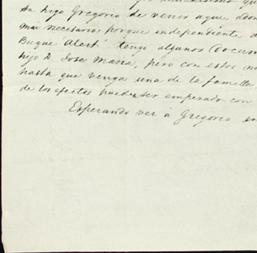 su hijo Gregorio de venir aqui, 
mui necesario porque independiente d
Buque Alert tengo algunos Docum
hijo D. Jose Maria, pero con estos no
hasta que venga una de la familia
de los efectos puede ser empesado con
Esperando ver á Gregorio en